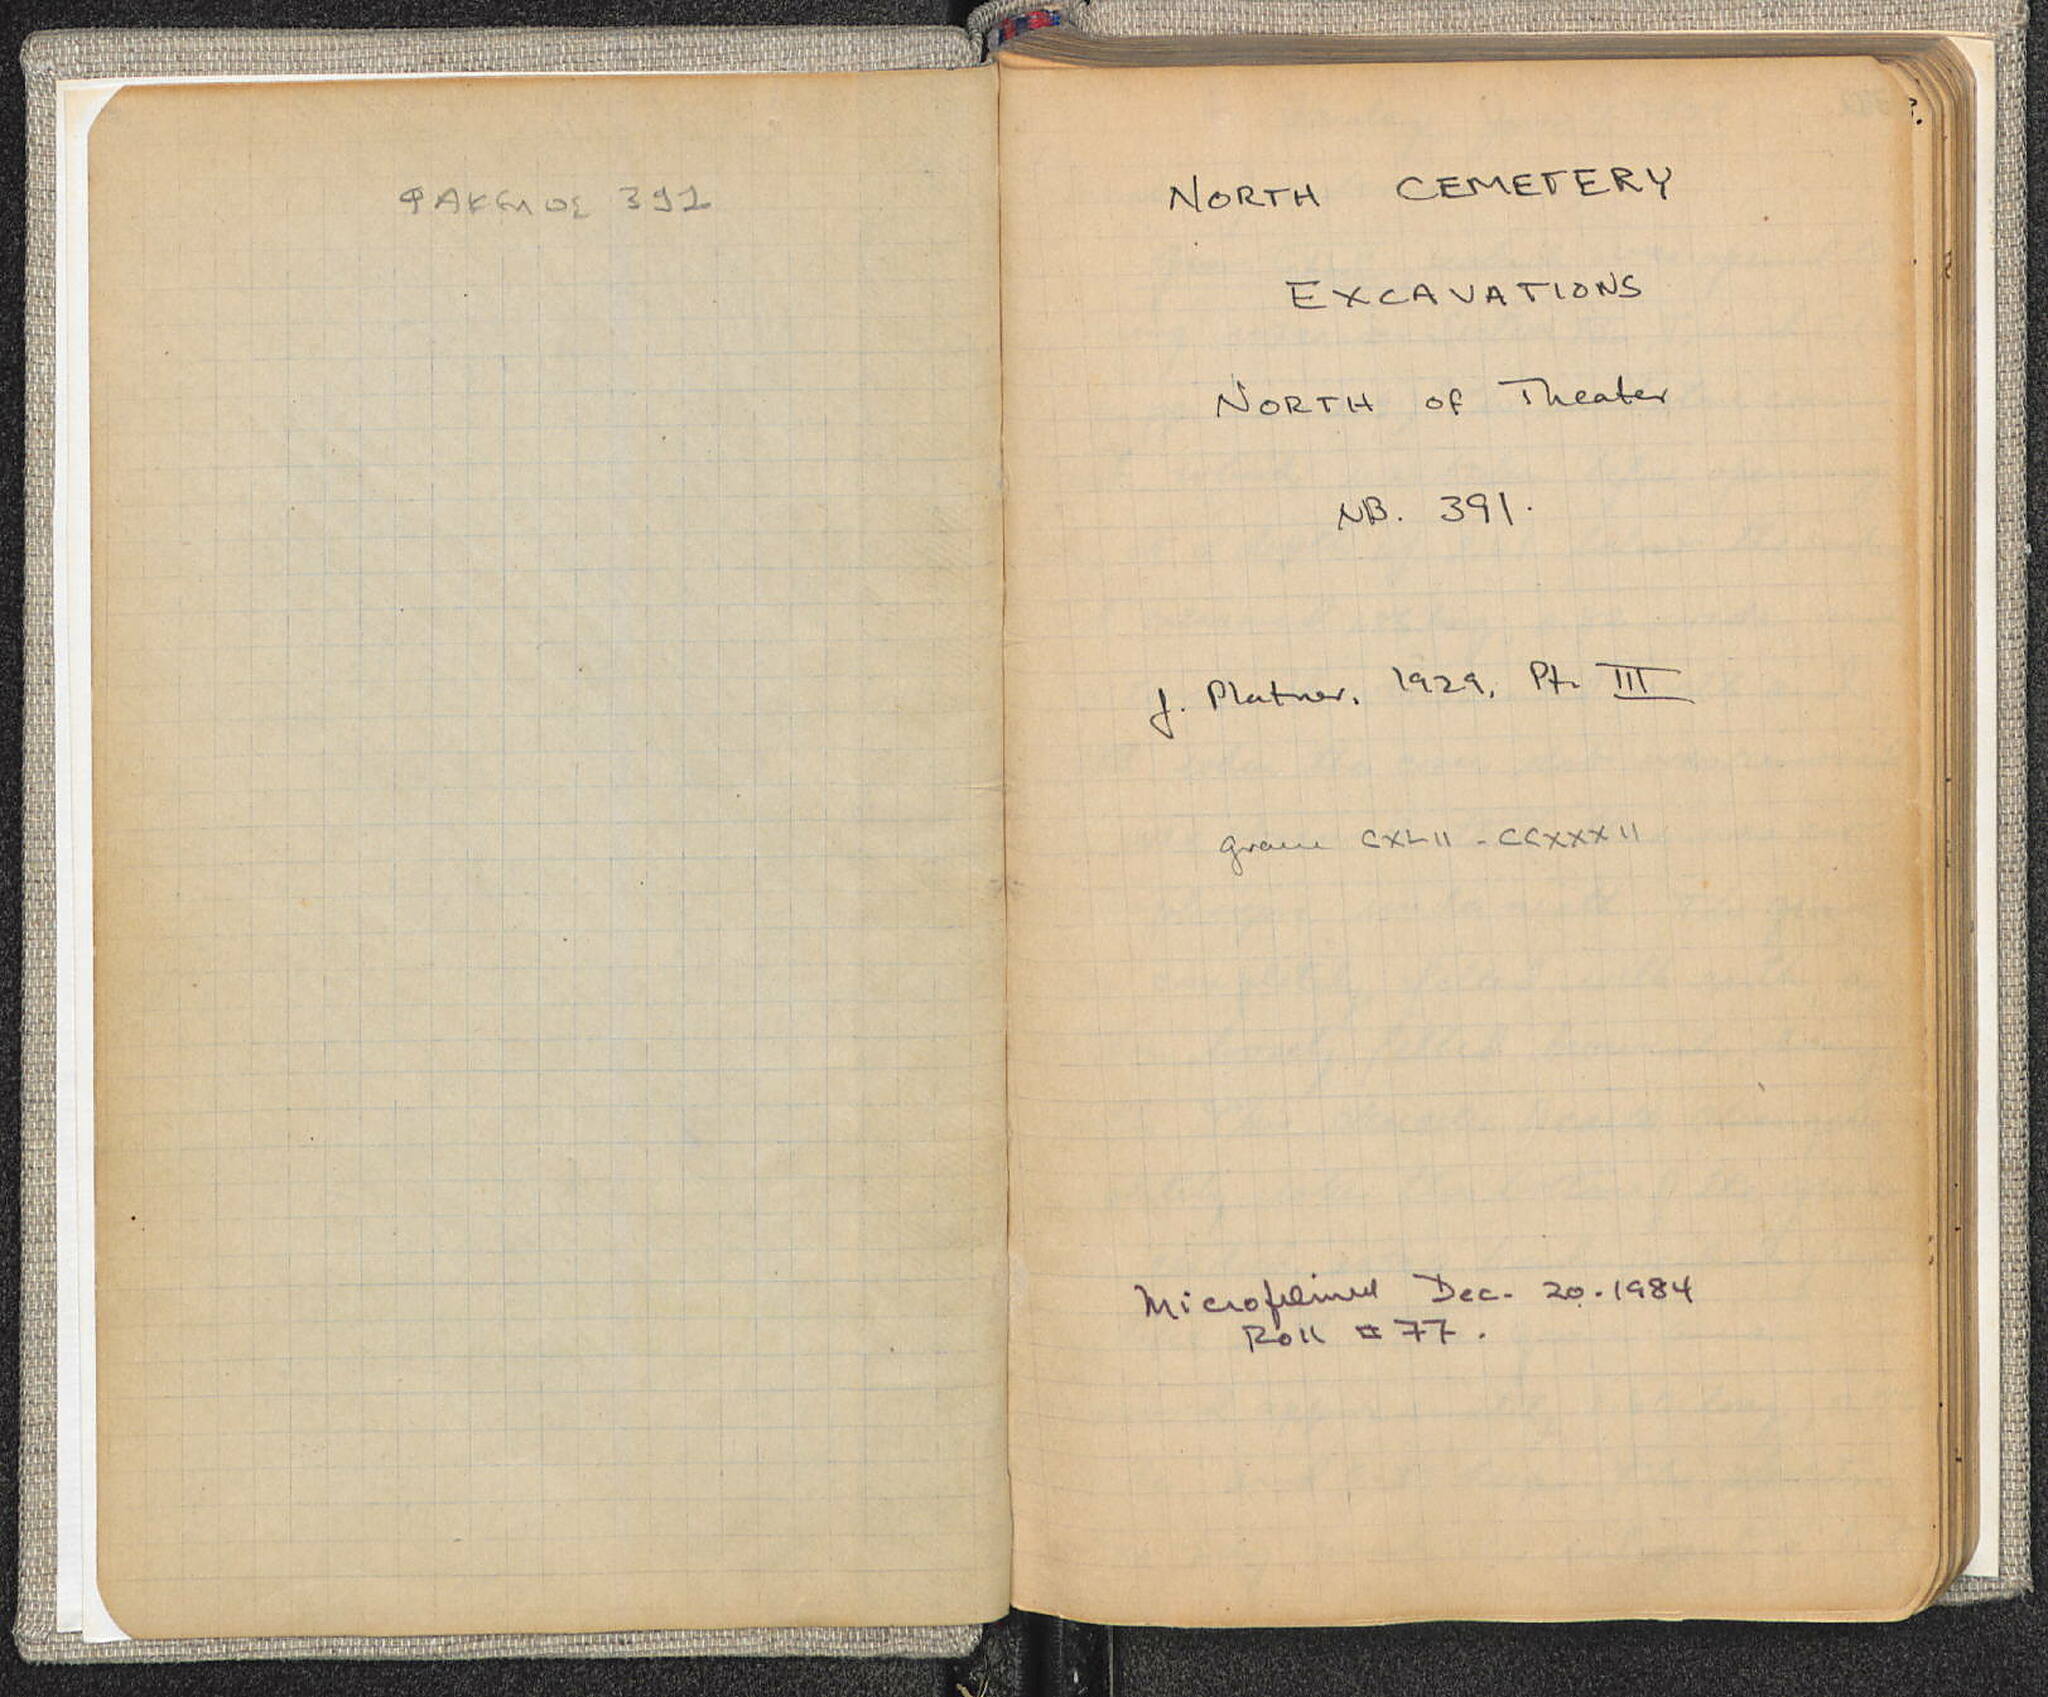 ΦΑΚΕΛΟΣ 391
NORTH CEMETERY
EXCAVATIONS
NORTH of Theater
NB. 391.
J. Platner. 1929. Pt. III
Grave CXLII - CCXXXII
Microfilmed Dec. 20. 1984
Roll # 77.